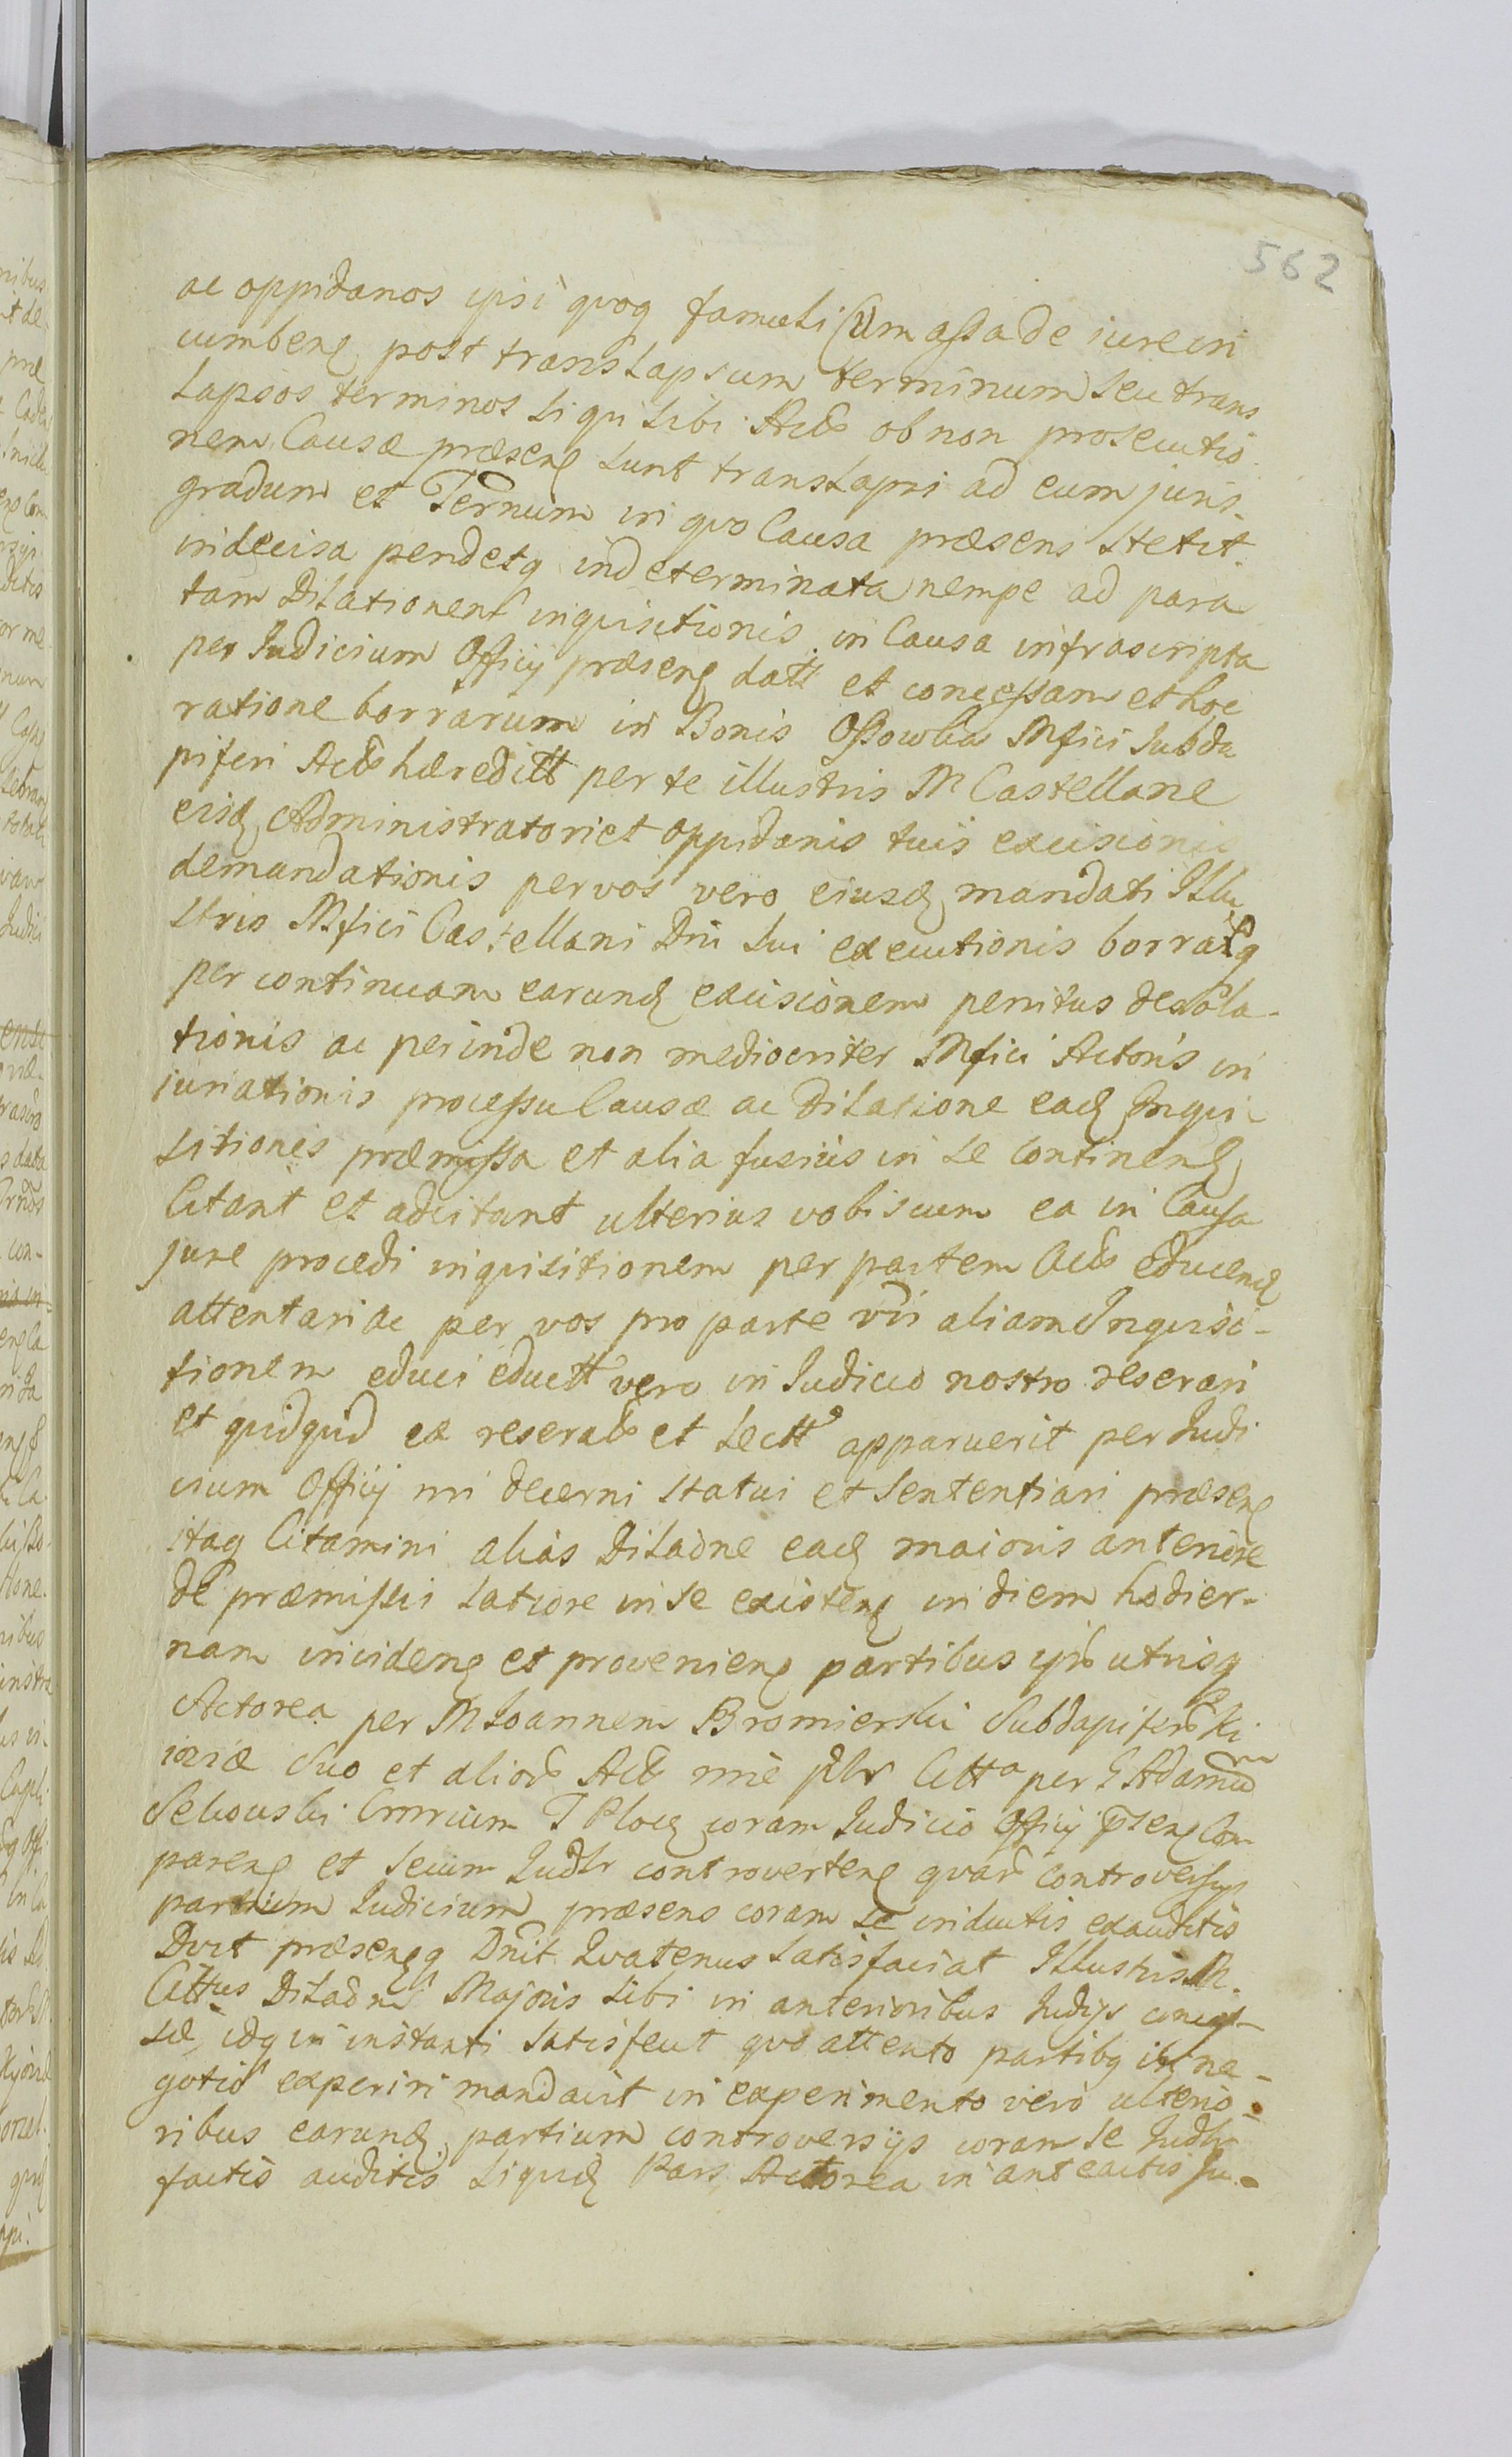 562
ac oppidanos ipsi quoq famuli Cum assa de iure in
cumbenq post translapsum terminum seu trans
lapsos terminos si qui sibi Actb ob non prosecutio
nem Causæ præsenq sunt translapsi ad eum juris
gradum et Ternum in quo Causa præsens stetit
indecisa pendetq indeterminata nempe ad para
tam Dilationem inquisitionis in Causa infrascripta
per Judicium Officij præsenq datt et concessam et hoc
ratione borrarum in Bonis Ossowka Mfici Subda
piferi Actb hæreditt per te illustris M Castellane
eisq Administratori et oppidanis tuis excisionis
demandationis per vos vero eiusq mandati Illu
stris Mfici Castellani Dni sui executionis borrarq
per continuam earunq excisionem penitus desola-
tionis ac perinde non mediocriter Mfici Actoris in
iuriationis processu Causæ ac Dilatione eaq Inqui-
sitionis præmissa et alia fusius in se continenq
Citant et adcitant ulterius vobiscum ea in Causa
jure procedi inquisitionem per partem Actb educenq
attentari ac per vos pro parte vri aliam Inquisi-
tionem educi eductt vero in Judicio nostro reserari
et quidquid ex reseratb et lectt apparuerit per Judi
cium Officij nri decerni statui et sententiari præsenq
itaq Citamini alias Dilaone eaq maioris anteriore
de præmissis latiore in se existenq in diem hodier-
nam incidenq et provenienq partibus ipsis utrisq
Actorea per M Joannem Bromierski Subdapiferum
suo et aliorb Actb nrie Citta per G Adamum
Sekouski T Plocq coram Judicio Officij Com
parenq et secum Judlr controvertenq quar controversys
partium Judicium præsens coram se inductis exauditis
Dvit præsenqq Dnit Quatenus satisfaciat Illustris M
Cittus Dilaoni Majoris sibi in anterioribus Judijs conces-
sæ, idq in instanti satisfecit quo attento partibq in ne-
gotio experiri mandavit in experimento vero ulterio-
ribus earunq partium controversijs coram se Judlr
factis auditis Siquiq Pars Actorea in anteactis Ju-